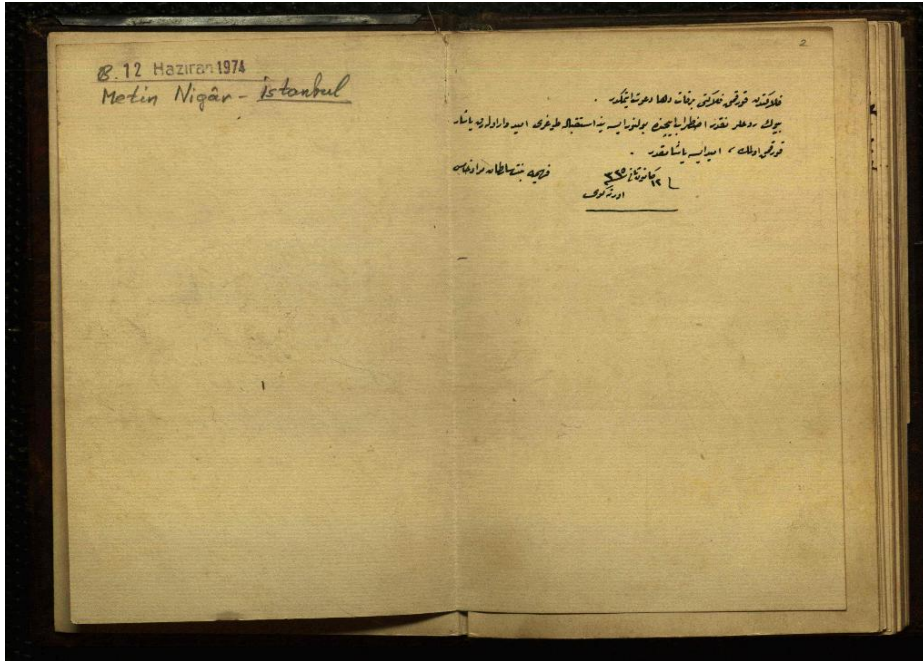 8. 12 Haziran 1974
Metin Nigâr - İstanbul
2
فلاكتدن قورقمق فلاكتى برقات دها دعوت ايتمكدر .
بيوك روحلر نقدر اضطراب ايچنده بولنورايسه ينه استقباله طوغرى اميدوار اوله رق ياشار
قورقمق اولمك ، اميد ايسه ياشامقدر .
فهيمه بنت سلطان مراد خامس
١٢ كانون ثانى ٣٣٥
اورته كوى